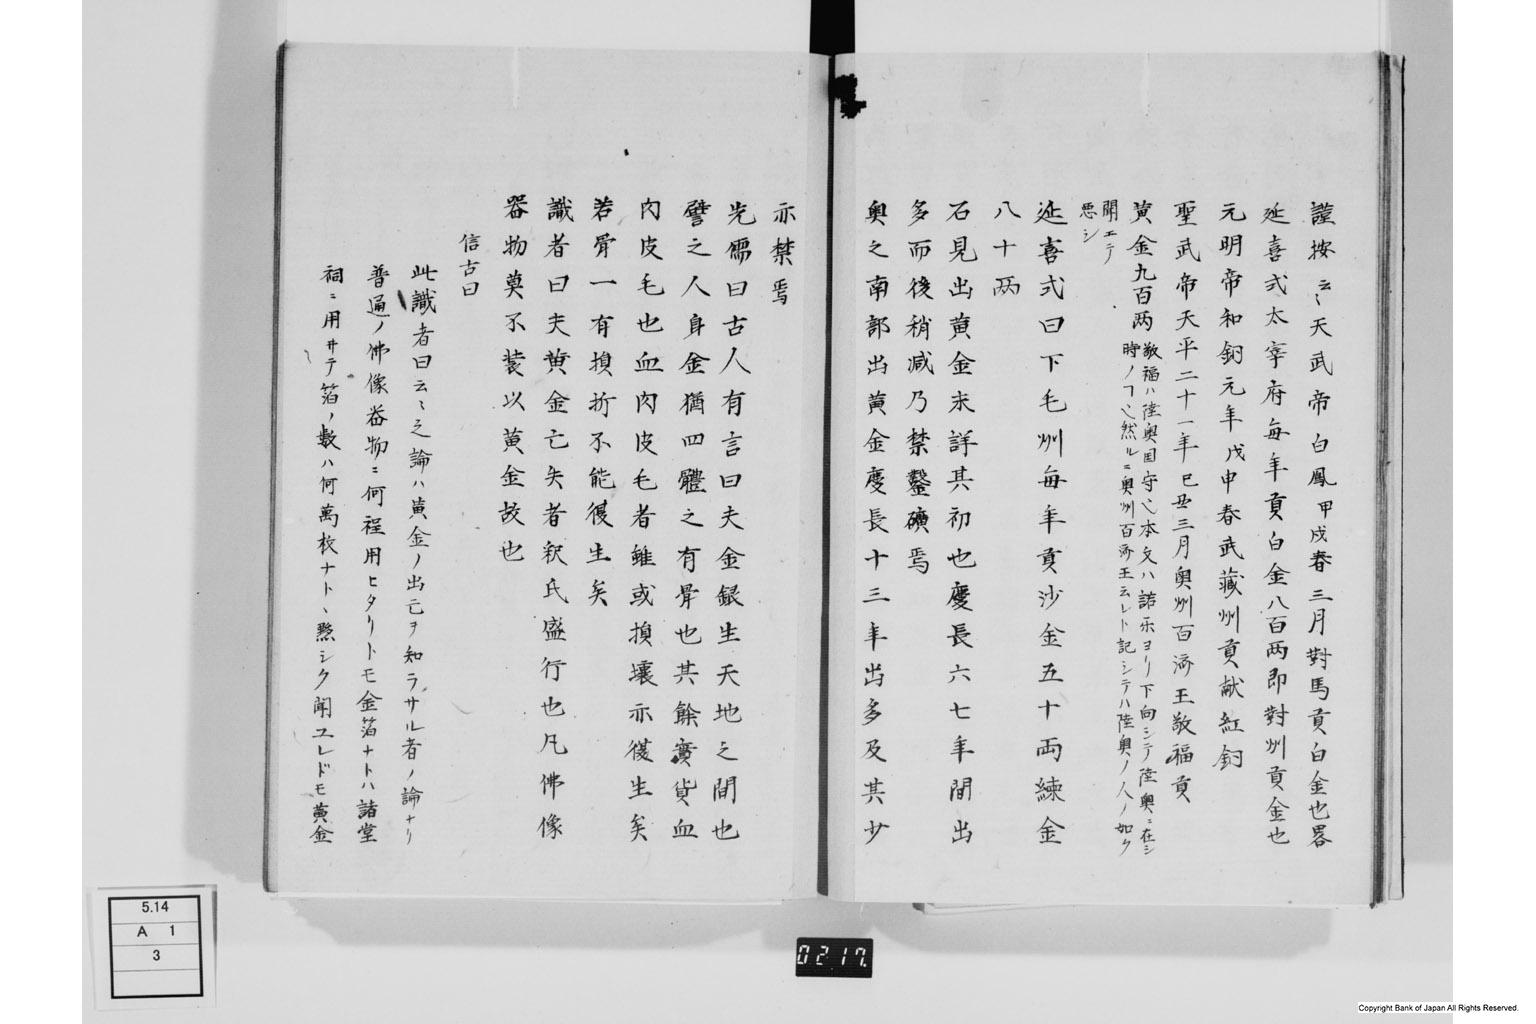 謹按云〻天武帝白鳳甲戌春三月對馬貢白金也畧
延喜式太宰府毎年貢白金八百两即對州貢金也
元明帝和銅元年戊申春武藏州貢献紅銅
聖武帝天平二十一年己丑三月奥州百濟王敬福貢
黄金九百两
敬福ハ陸奥国守也本文ハ諾乐ヨリ下向シテ陸奥ニ在シ
時ノフ也然ルニ奥州百濟王云レト記シテハ陸奥ノ人ノ如ク
聞エテ
悪シ
延喜式曰下毛州毎年貢沙金五十両練金
八十两
石見出黄金未詳其初也慶長六七年間出
多而後稍减乃禁鑿礦焉
奥之南部出黄金慶長十三年出多及其少
亦禁焉
先儒曰古人有言曰夫金銀生天地之間也
譬之人身金猶四體之有骨也其餘寳貨血
肉皮毛也血肉皮毛者雖或損壞亦復生矣
若骨一有損折不能復生矣
識者曰夫黄金亡失者釈氏盛行也凡佛像
器物莫不装以黄金故也
信古曰
此識者曰云〻之論ハ黄金ノ出亡ヲ知ラサル者ノ論ナリ
普遍ノ佛像器物ニ何程用ヒタリトモ金箔ナトハ諸堂
祠ニ用ヰテ箔ノ數ハ何萬枚ナト、㸃シク聞ユレドモ黄金
5.14
A 1
3
0217
Copyright Bank of Japan All Rights Reserved.